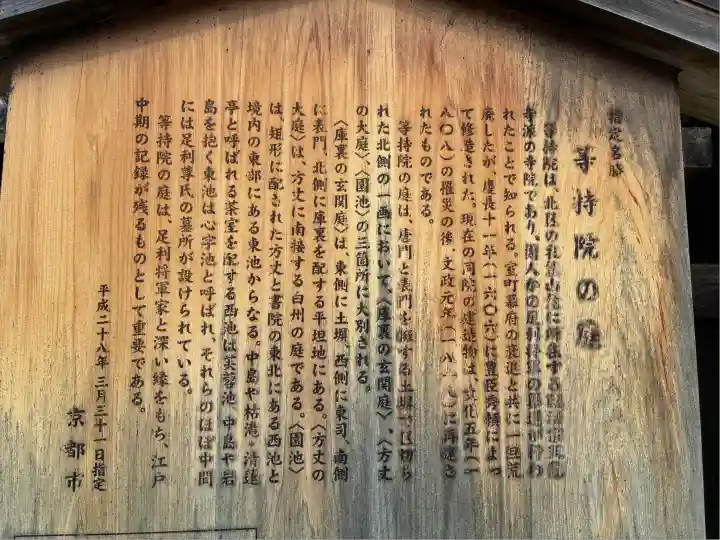 指定名勝
等持院の庭
等持院は、北区の衣笠山麓に所在する臨済宗天龍
寺派の寺院であり、開人かの足利将軍の葬送が行わ
れたことで知られる。室町幕府の衰退と共に一旦荒
廃したが、慶長十一年(一六〇六)に豊臣秀頼によっ
て修造された。現在の同院の建造物は、文化五年(一
八〇八)の罹災の後、文政元年(一八一八)に再建さ
れたものである。
等持院の庭は、唐門と表門を擁する土塀で区切ら
れた北側の一画において、〈庫裏の玄関庭〉、〈方丈
の大庭〉、〈園池〉の三箇所に大別される。
〈庫裏の玄関庭〉は、東側に土塀、西側に東司、南側
に表門、北側に庫裏を配する平坦地にある。〈方丈の
大庭〉は、方丈に南接する白州の庭である。〈園池〉
は、矩形に配された方丈と書院の東北にある西池と
境内の東部にある東池からなる。中島や枯滝、清漣
亭と呼ばれる茶室を配する西池は芙蓉池、中島や岩
島を抱く東池は心字池と呼ばれ、それらのほぼ中間
には足利尊氏の墓所が設けられている。
等持院の庭は、足利将軍家と深い縁をもち、江戸
中期の記録が残るものとして重要である。
平成二十八年三月三十一日指定
京都市